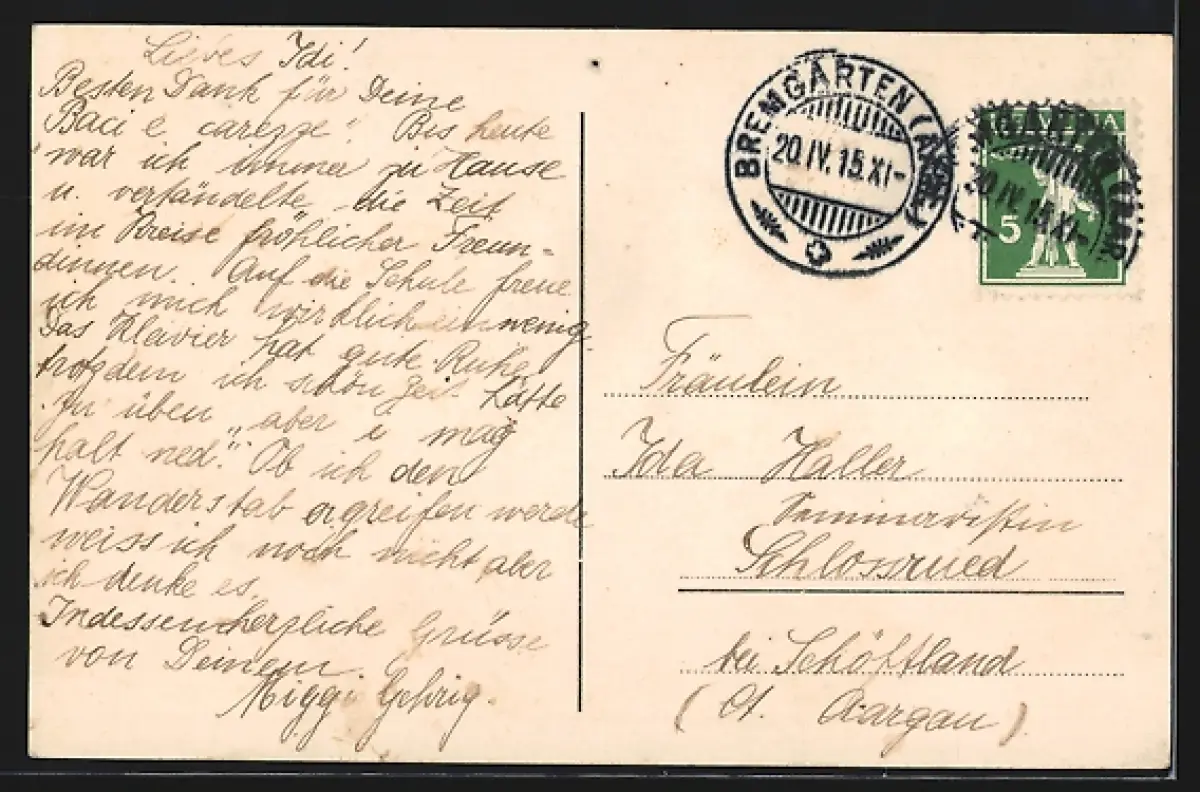 Liebes Idi!
Besten Dank für Deine
"Baci e carezze". Bis heute
war ich immer zu Hause
u. vertändelte die Zeit
im Kreise fröhlicher Freun-
dinnen. Auf die Schule freue
ich mich wirklich ein wenig.
Das Klavier hat gute Ruhe,
trotzdem ich schön Zeit hätte
zu üben "aber i mag
halt ned". Ob ich den
Wanderstab ergreifen werde
weiss ich noch nicht aber
ich denke es.
Indessen herzliche Grüsse
von Deinem
Miggi Gehrig.
BREMGARTEN (AARG.)
20.IV.15.XI-
HELVETIA
5
20.IV.15.XI-
Fräulein
Ida Haller
Seminaristin
Schlossrued
bei Schöftland
(Ct. Aargau)